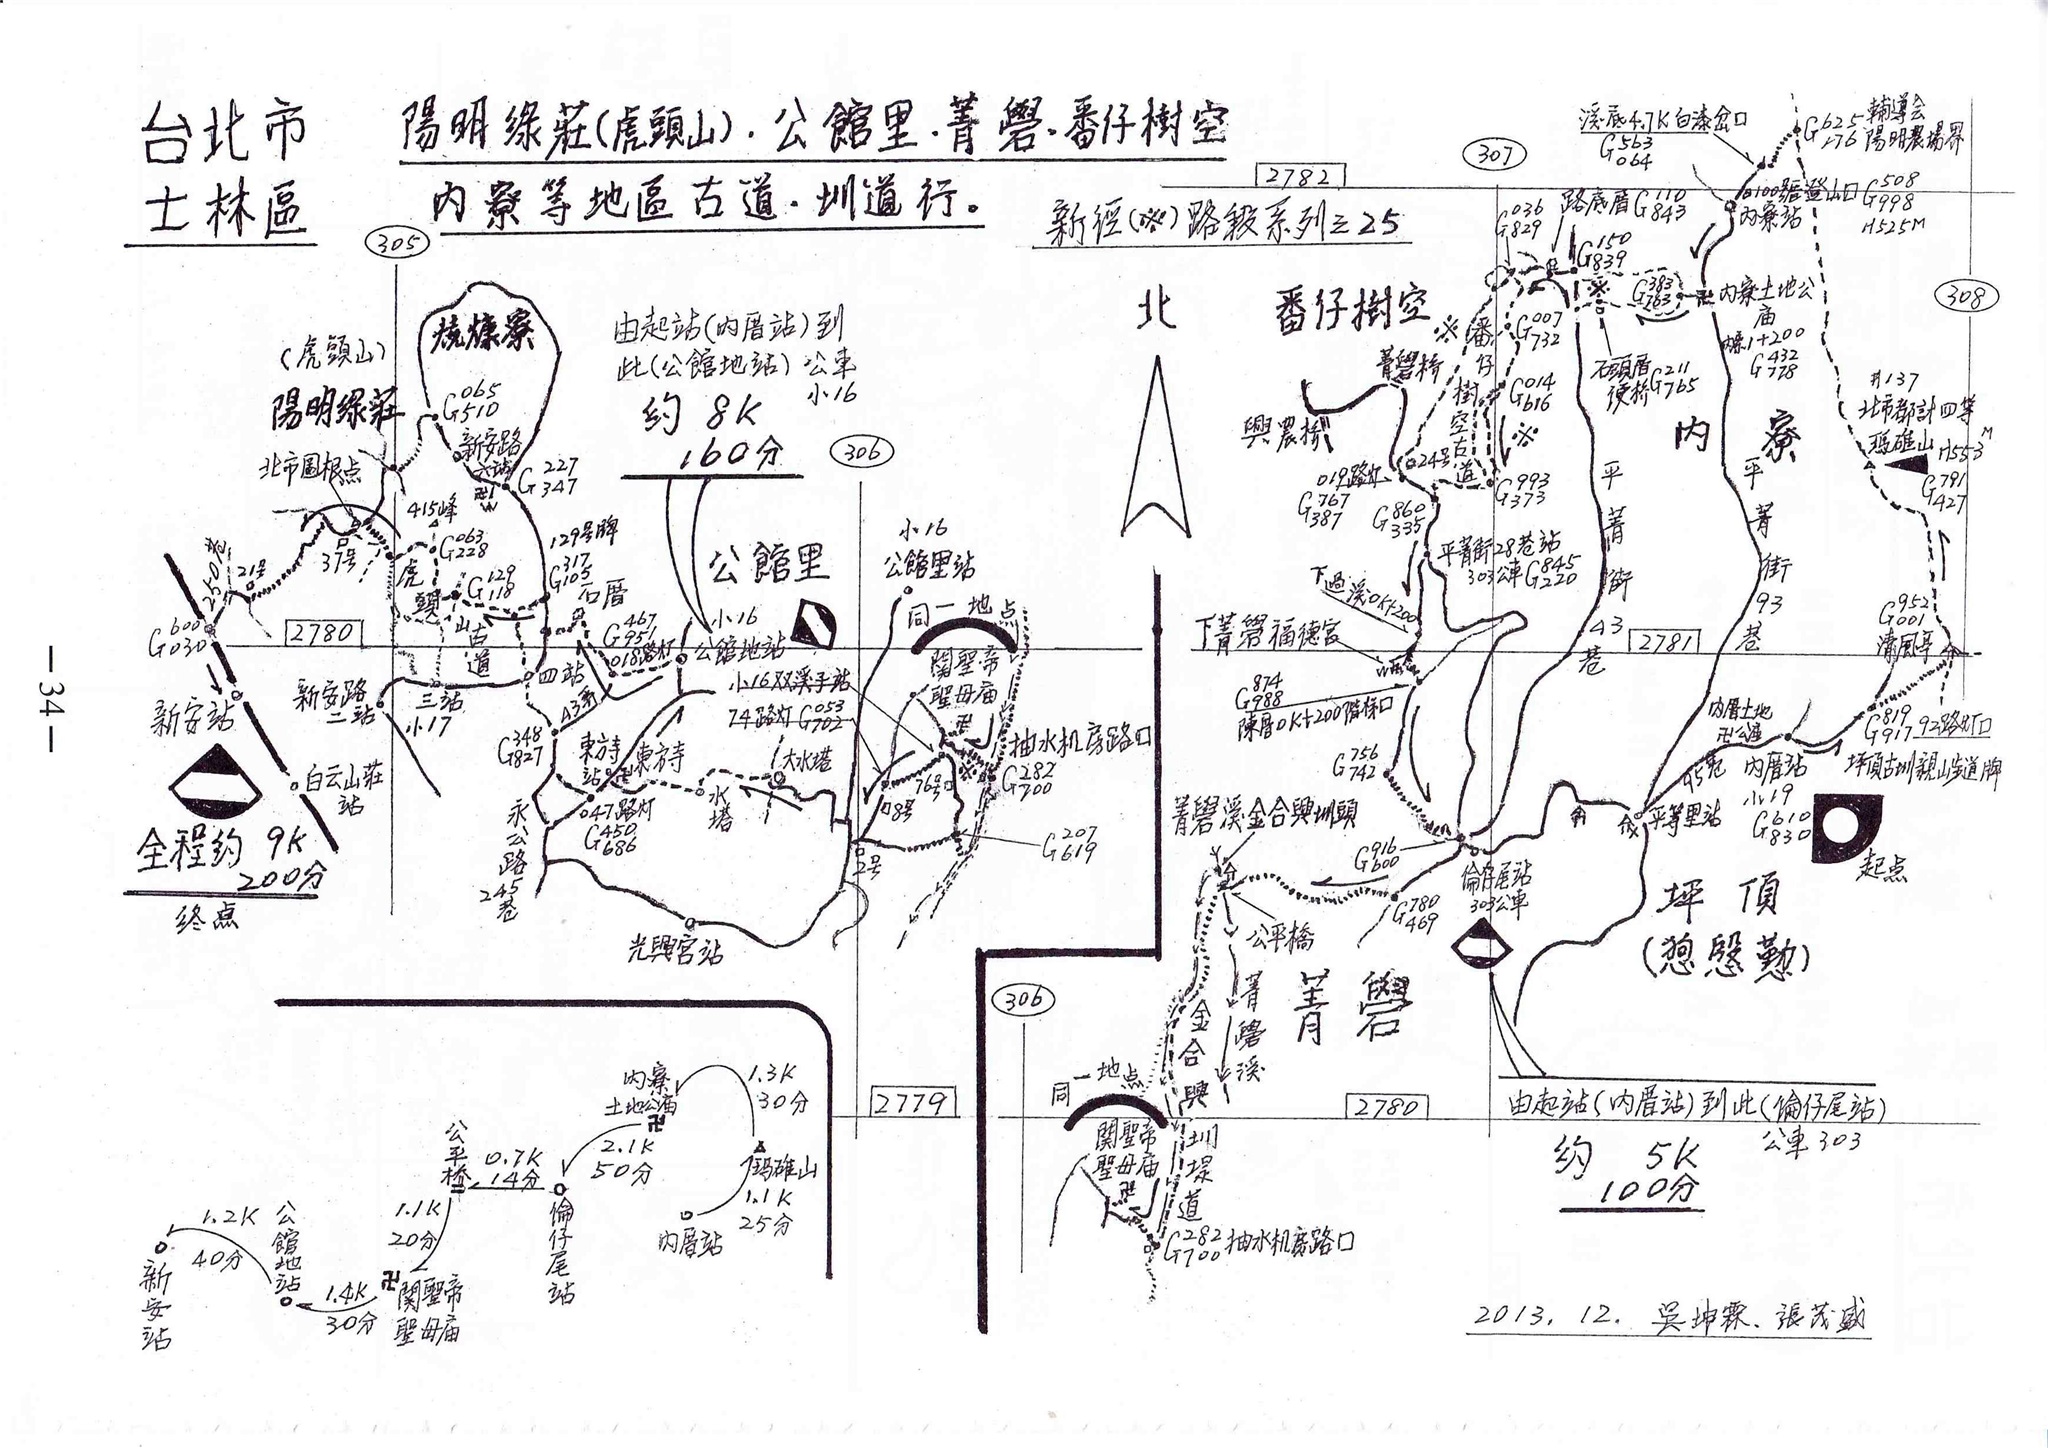 台北市
士林區
陽明綠莊(虎頭山)．公館里．菁礐．番仔樹空
內寮等地區古道．圳道行。
新徑(※)路段系列之25
305
(虎頭山)
陽明綠莊
北市圖根点
燒㷮寮
G065
510
新安路
六站
G227
347
415峰
G063
228
G129
118
129号牌
G317
105
石厝
G467
951
018路灯
37号
21号
250巷
虎頭山古道
2780
G600
030
新安站
白云山莊
站
全程約 9K
200分
終点
新安路
二站
三站
小17
四站
43系
G348
827
東方寺
站
東方寺
047路灯
G450
686
永公路
245巷
光興宮站
水塔
大水塔
由起站(內厝站)到
此(公館地站) 公車
小16
約 8K
160分
公館里
小16
公館地站
小16双溪手站
74路灯G053
702
306
小16
公館里站
同一地点
関聖帝
聖母庙
抽水机房路口
G282
700
76号
8号
2号
G207
619
北
番仔樹空
307
2782
溪底4.7K白漆岔口
G563
064
G625
276
輔導会
陽明農場界
內寮站
G508
998
H525M
路底厝G110
843
G036
829
G150
839
G383
763
內寮土地公
庙
G432
778
308
G007
732
石頭厝
便橋G211
765
G014
616
番仔樹空古道
菁礐桥
興農橋
024号
019路灯
G767
387
G860
335
G993
373
平菁街28巷站
303公車G845
220
下過溪0K+200
下菁礐福德宮
G874
988
陳厝0K+200階梯口
G756
742
內寮
#137
北市都計四等
瑪礁山 H553M
G791
427
平菁街43巷
平菁街93巷
2781
G952
001
清風亭
G819
917
92路灯口
坪頂古圳親山步道牌
內厝土地
公庙
內厝站
小19
G610
830
起点
95巷
平等里站
坪頂
倫仔尾站
303公車
G916
600
G780
469
菁礐溪金合興圳頭
公平橋
菁礐
菁礐溪
金合興圳堤道
306
同一地点
関聖帝
聖母庙
G282
700
抽水机房路口
2779
2780
由起站(內厝站)到此(倫仔尾站)
公車303
約 5K
100分
內寮
土地公庙
1.3K
30分
瑪礁山
1.1K
25分
內厝站
2.1K
50分
倫仔尾站
0.7K
14分
公平橋
1.1K
20分
関聖帝
聖母庙
1.4K
30分
公館地站
1.2K
40分
新安站
2013．12．吳坤霖．張茂盛
—34—